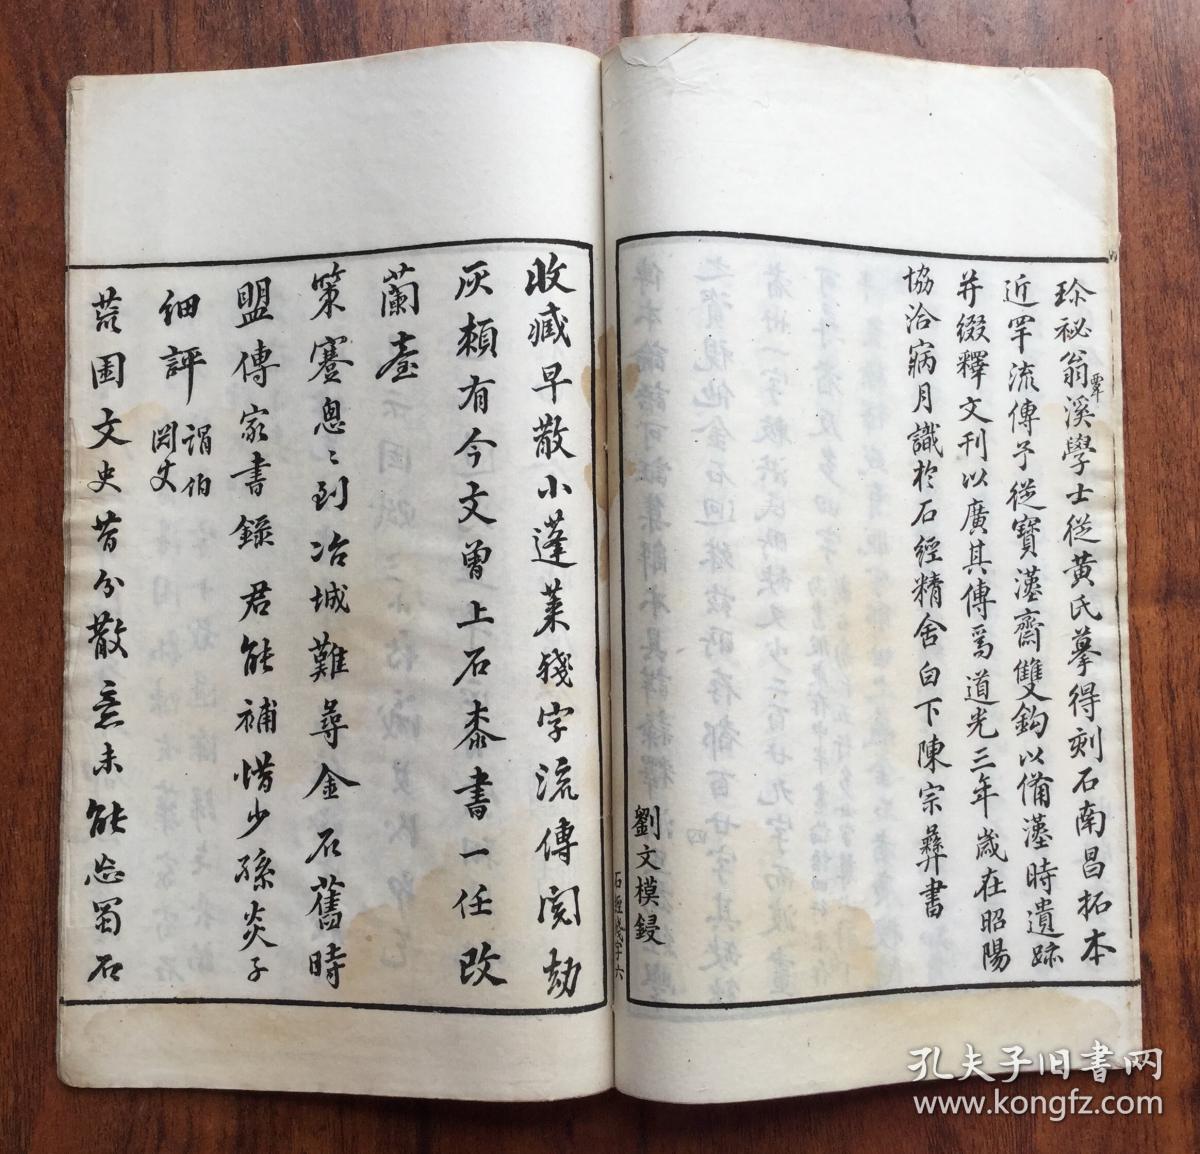 珎祕翁覃溪學士從黃氏摹得刻石南昌拓本
近罕流傳予從寶漢齋雙鈎以備漢時遺跡
并綴釋文刊以廣其傳焉道光三年歲在昭陽
協洽病月識於石經精舍白下陳宗彝書
劉文模鋟
石經殘字六
收臧早散小蓬萊殘字流傳閱劫
灰賴有今文曾上石桼書一任改
蘭臺
策蹇恖〻到冶城難尋金石舊時
盟傳家書錄君能補惜少孫炎子
細評
謂伯
閎丈
荒園文史昔分散意未能忘蜀石
孔夫子旧书网
www.kongfz.com